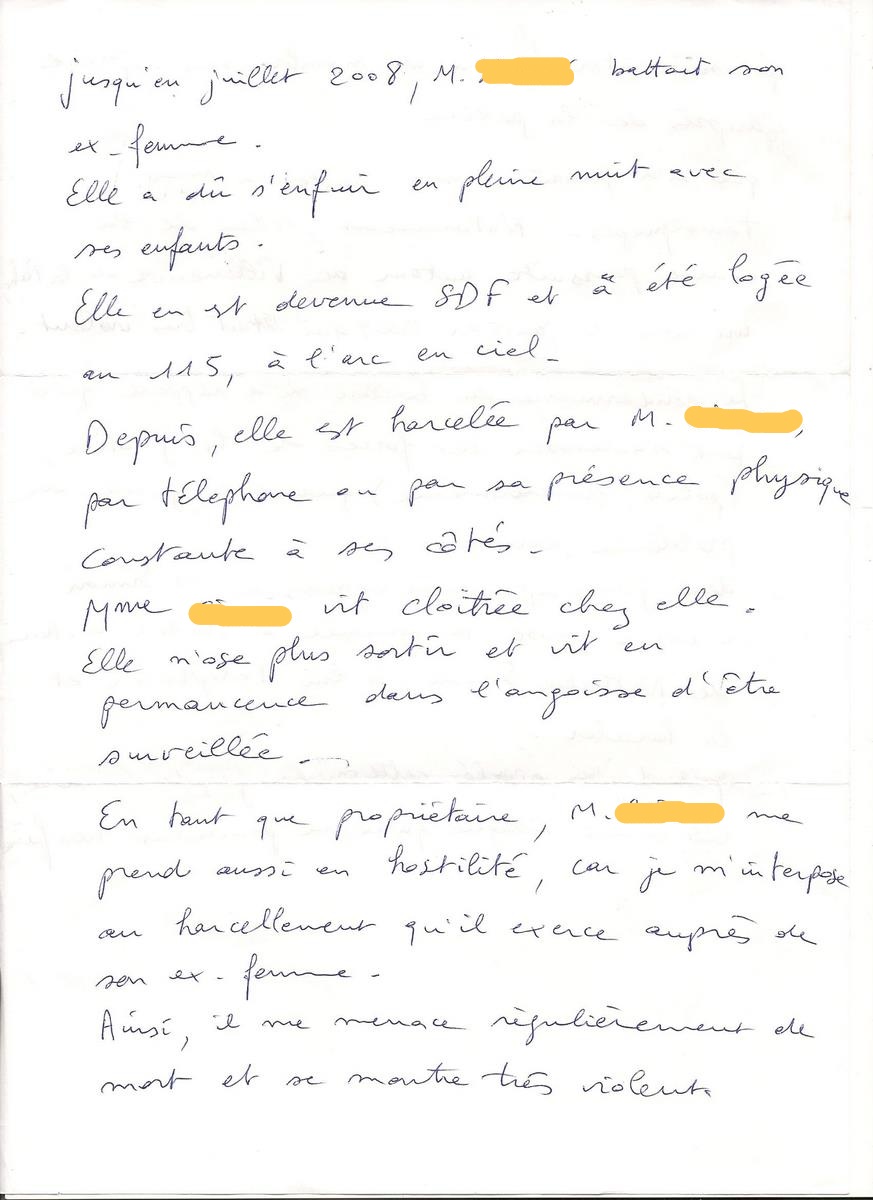 jusqu'en juillet 2008, M. battait son
ex-femme.
Elle a dû s'enfuir en pleine nuit avec
ses enfants.
Elle en est devenue SDF et a été logée
au 115, à l'arc en ciel.
Depuis, elle est harcelée par M. ,
par télephone ou par sa présence physique
constante à ses côtés.
Mme vit cloîtrée chez elle.
Elle n'ose plus sortir et vit en
permancence dans l'angoisse d'être
surveillée.
En tant que propriétaire, M. me
prend aussi en hostilité, car je m'interpose
au harcellement qu'il exerce auprès de
son ex-femme.
Ainsi, il me menace régulièrement de
mort et se montre très violent.